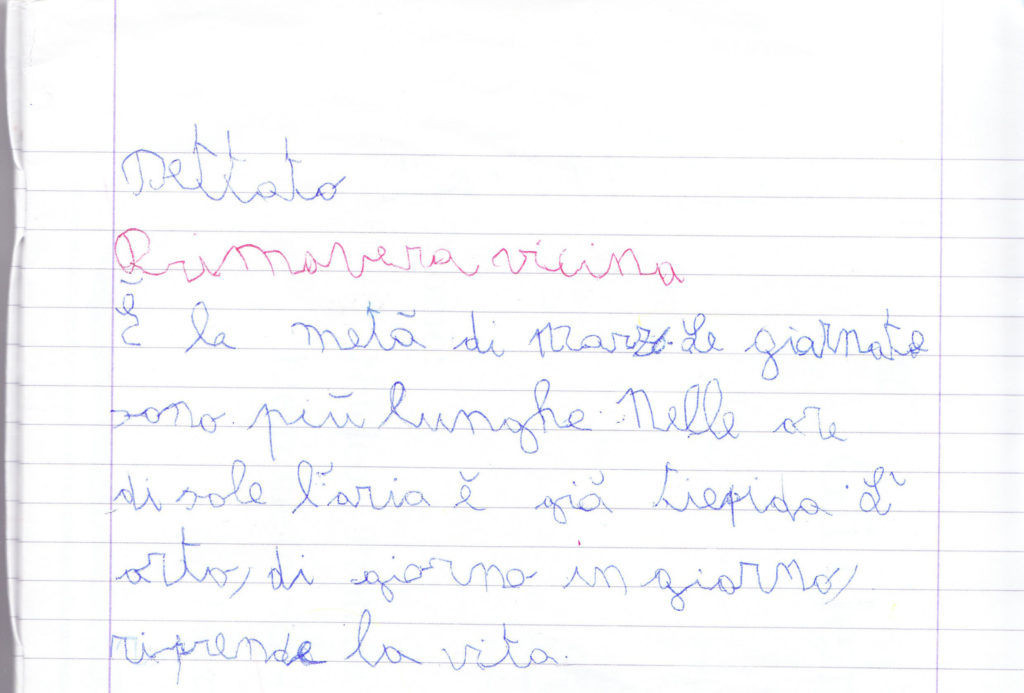 Dettato
Primavera vicina
È la metà di marzo. Le giornate
sono più lunghe. Nelle ore
di sole l'aria è già tiepida. L'
orto, di giorno in giorno,
riprende la vita.